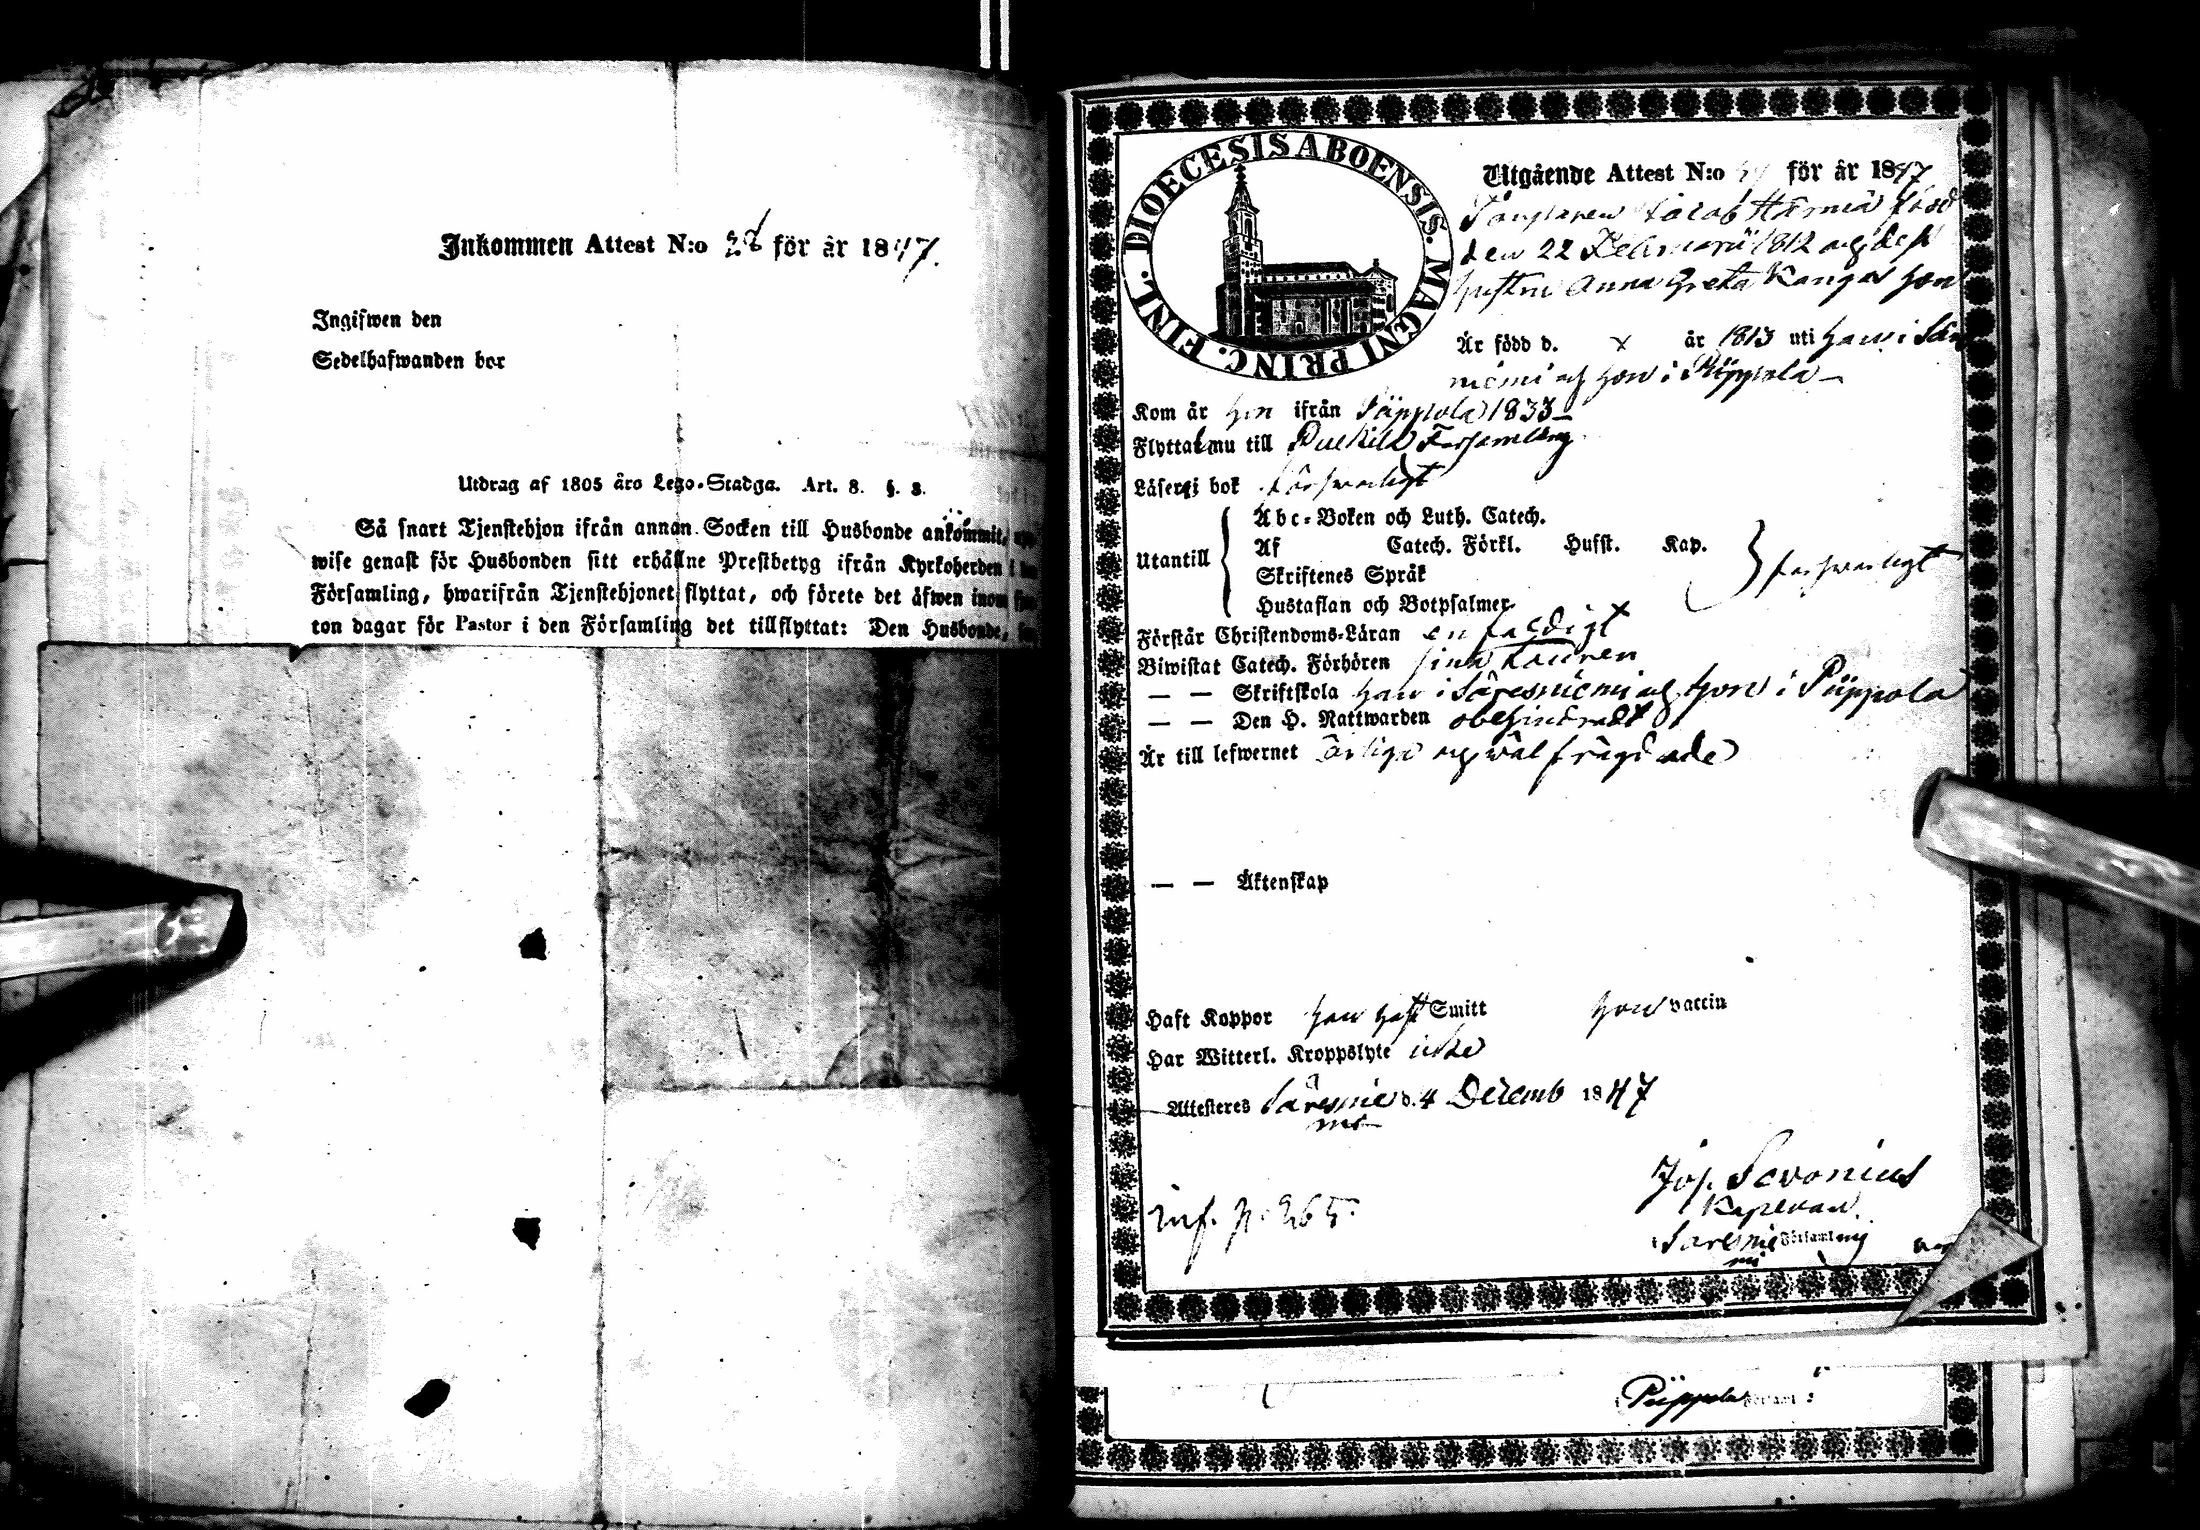 Inkommen Attest N:o 28 för år 1847.
Ingifwen den
Sedelhafwanden bor
Utdrag af 1805 års Lego-Stadga. Art. 8. §. 3.
Så snart Tjenstehjon ifrån annan Socken till Husbonde ankommit,
wise genast för Husbonden sitt erhållne Prestbetyg ifrån Kyrkoherden i
Församling, hwarifrån Tjenstehjonet flyttat, och förete det äfwen inom
ton dagar för Pastor i den Församling det tillflyttat: Den Husbonde,
DIOECESIS ABOENSIS. MAGNI PRINC. FINL.
Utgående Attest N:o för år 1847
Jacob Härmä född
den 22 Februarii 1812 och dess
hustru Anna Greta Kangas hon
Är född d. x år 1813 uti han i Säres
niemi och hon i Piippola
Kom år hon ifrån Piippola 1833
Flytta nu till Pulkila Församling
Läser i bok försvarligt
Utantill
Abc-Boken och Luth. Catech.
Af Catech. Förkl. Husst. Kap.
Skriftenes Språk
Hustaflan och Botpsalmer
försvarligt
Förstår Christendoms-Läran enfaldigt
Biwistat Catech. Förhören sina
— — Skriftskola han i Säresniemi och hon i Piippola
— — Den H. Nattwarden obehindradt
Är till lefwernet ärliga och wälfrägdade
— — Äktenskap
Haft Koppor han haft Smitt hon vaccin
Har Witterl. Kroppslyte icke
Attesteres Säresnie d. 4 Decemb 1847
mi
Jos. Savonius
Kapellan
Säresnie Församling
mi
inf. p. 265.
Piippola